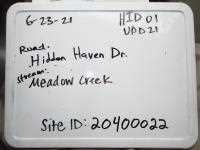 6-23-21 HID 01
UDD 21
Road:
Hidden Haven Dr.
stream:
Meadow Creek
Site ID: 20400022